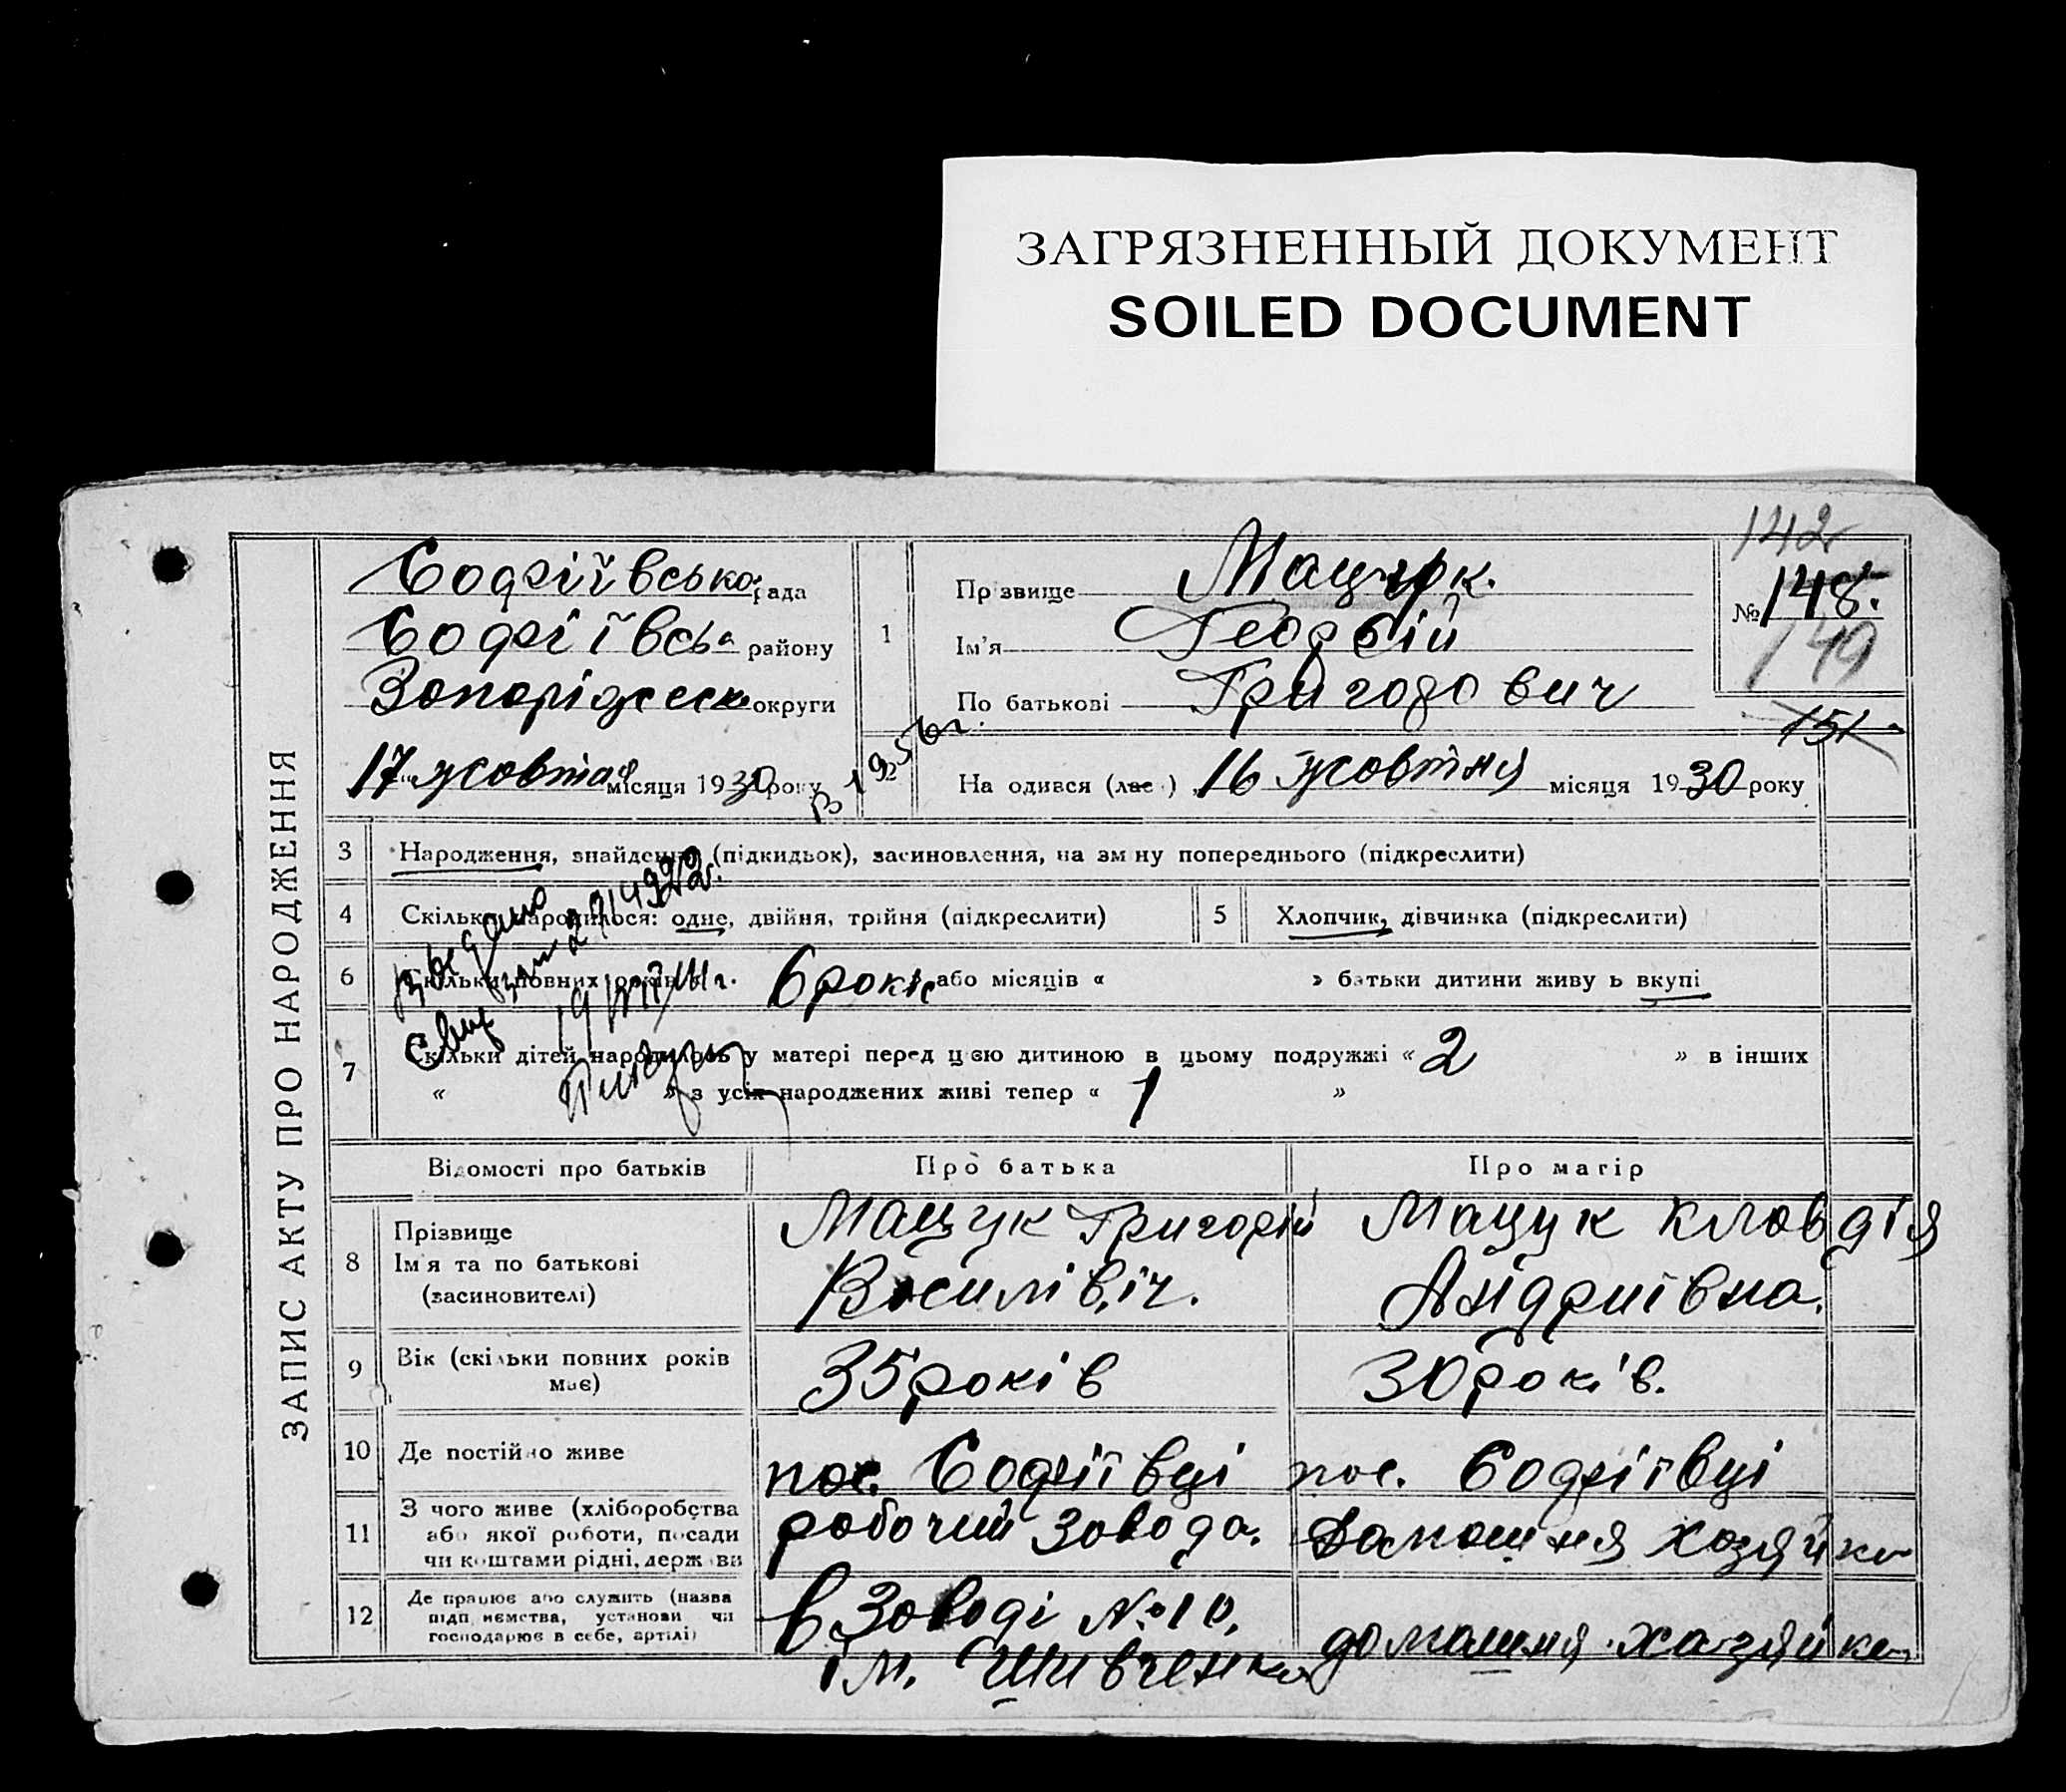 ЗАГРЯЗНЕННЫЙ ДОКУМЕНТ
SOILED DOCUMENT
ЗАПИС АКТУ ПРО НАРОДЖЕННЯ
Софіївська рада
Софіївськ району
Запоріжськ округи
17 жовтня місяця 1930 року
1
Прізвище Мацук.
Ім'я Георгій
По батькові Григорович
142
№ 148.
149
151
2
На одився (лас ) 16 жовтня місяця 1930 року
3 Народження, знайдення (підкидьок), засиновлення, на зміну попереднього (підкреслити)
4 Скільки народилося: одне, двійня, трійня (підкреслити)
5 Хлопчик, дівчинка (підкреслити)
6 Скільки повних років 6 років або місяців « » батьки дитини живуть вкупі
7 Скільки дітей народилось у матері перед цією дитиною в цьому подружжі « 2 » в інших
« » з усіх народжених живі тепер « 1 »
Відомості про батьків Про батька Про матір
8 Прізвище
Ім'я та по батькові
(засиновителі)
Мацук Григорій
Василівіч.
Мацук Клавдія
Андриївна.
9 Вік (скільки повних років
має)
35 років
30 років.
10 Де постійно живе
пос. Софіївці
пос. Софіївці
11 З чого живе (хліборобства
або якої роботи, посади
чи коштами рідні, держави
робочий завода.
Домашня хозяйка
12 Де працює або служить (назва
підприємства, установи чи
господарює в себе, артілі)
в Заводі № 10.
ім. Шивченка
домашня хазяйка